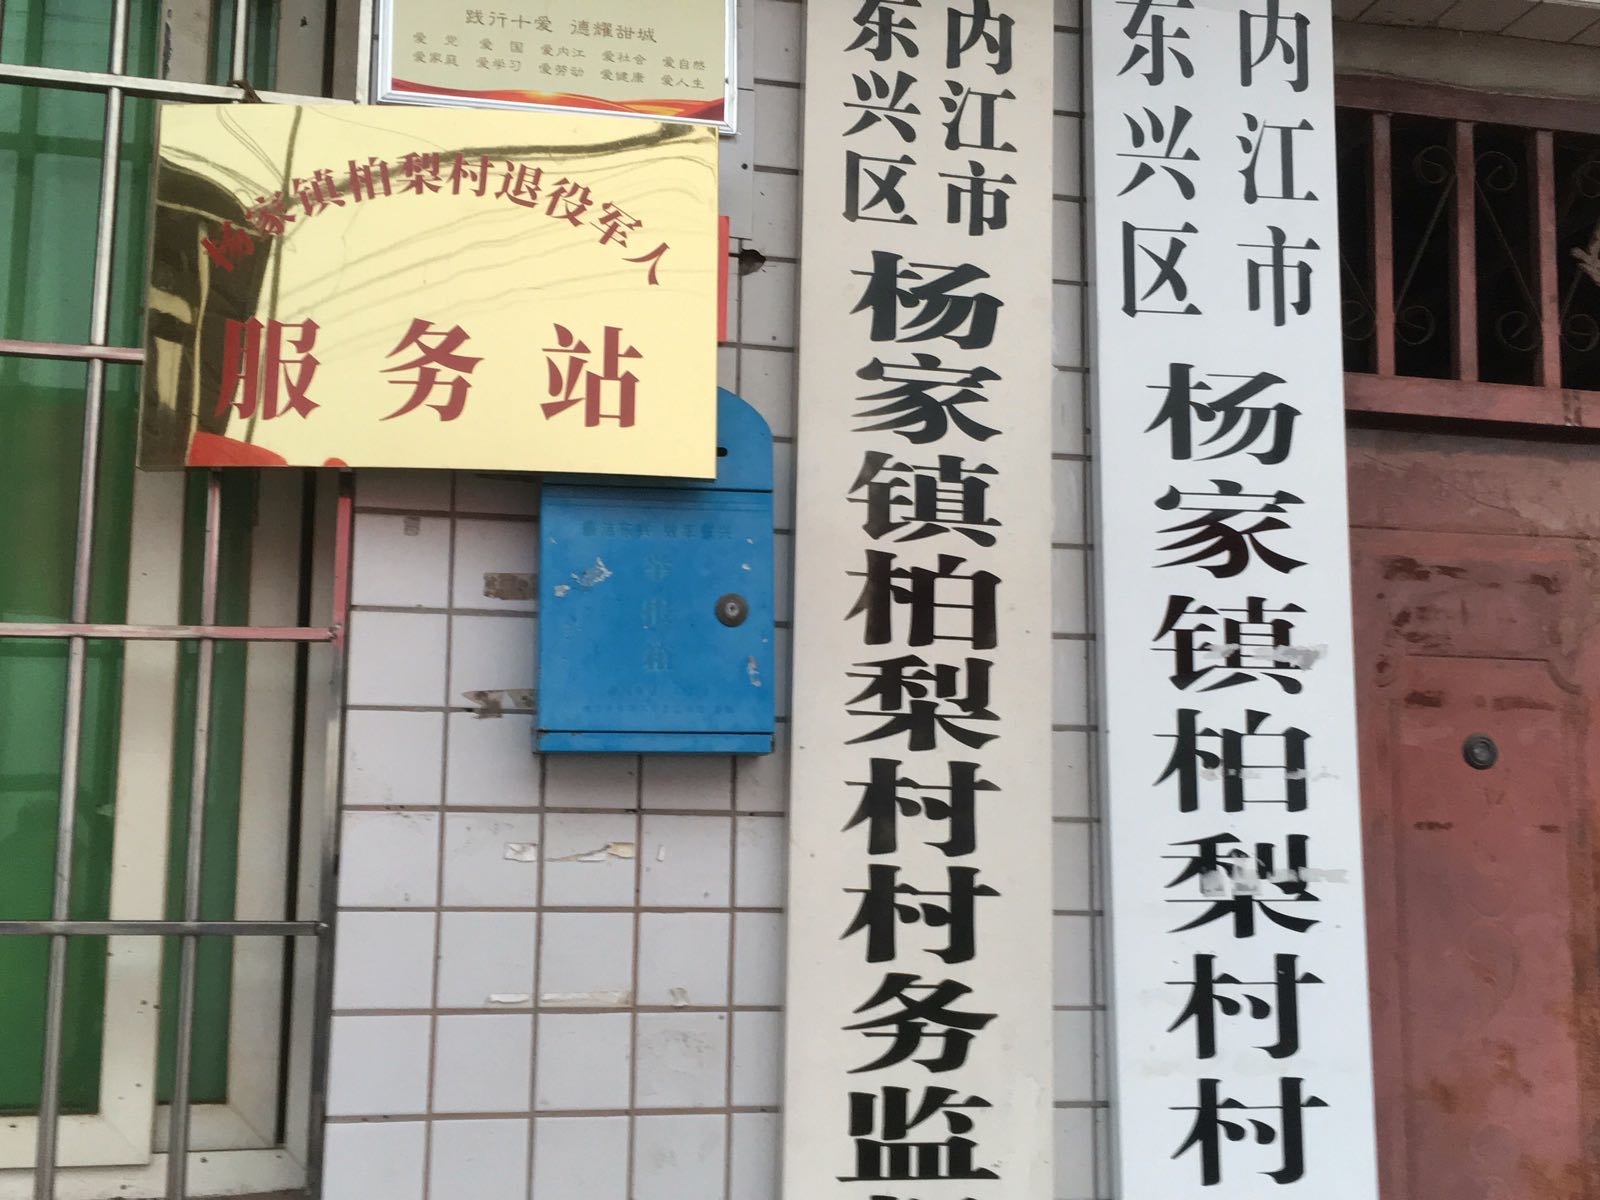 践行十爱 德耀甜城
爱党 爱国 爱内江 爱社会 爱自然
爱家庭 爱学习 爱劳动 爱健康 爱人生
杨家镇柏梨村退役军人
服务站
内江市
东兴区
杨家镇柏梨村村务监
内江市
东兴区
杨家镇柏梨村村